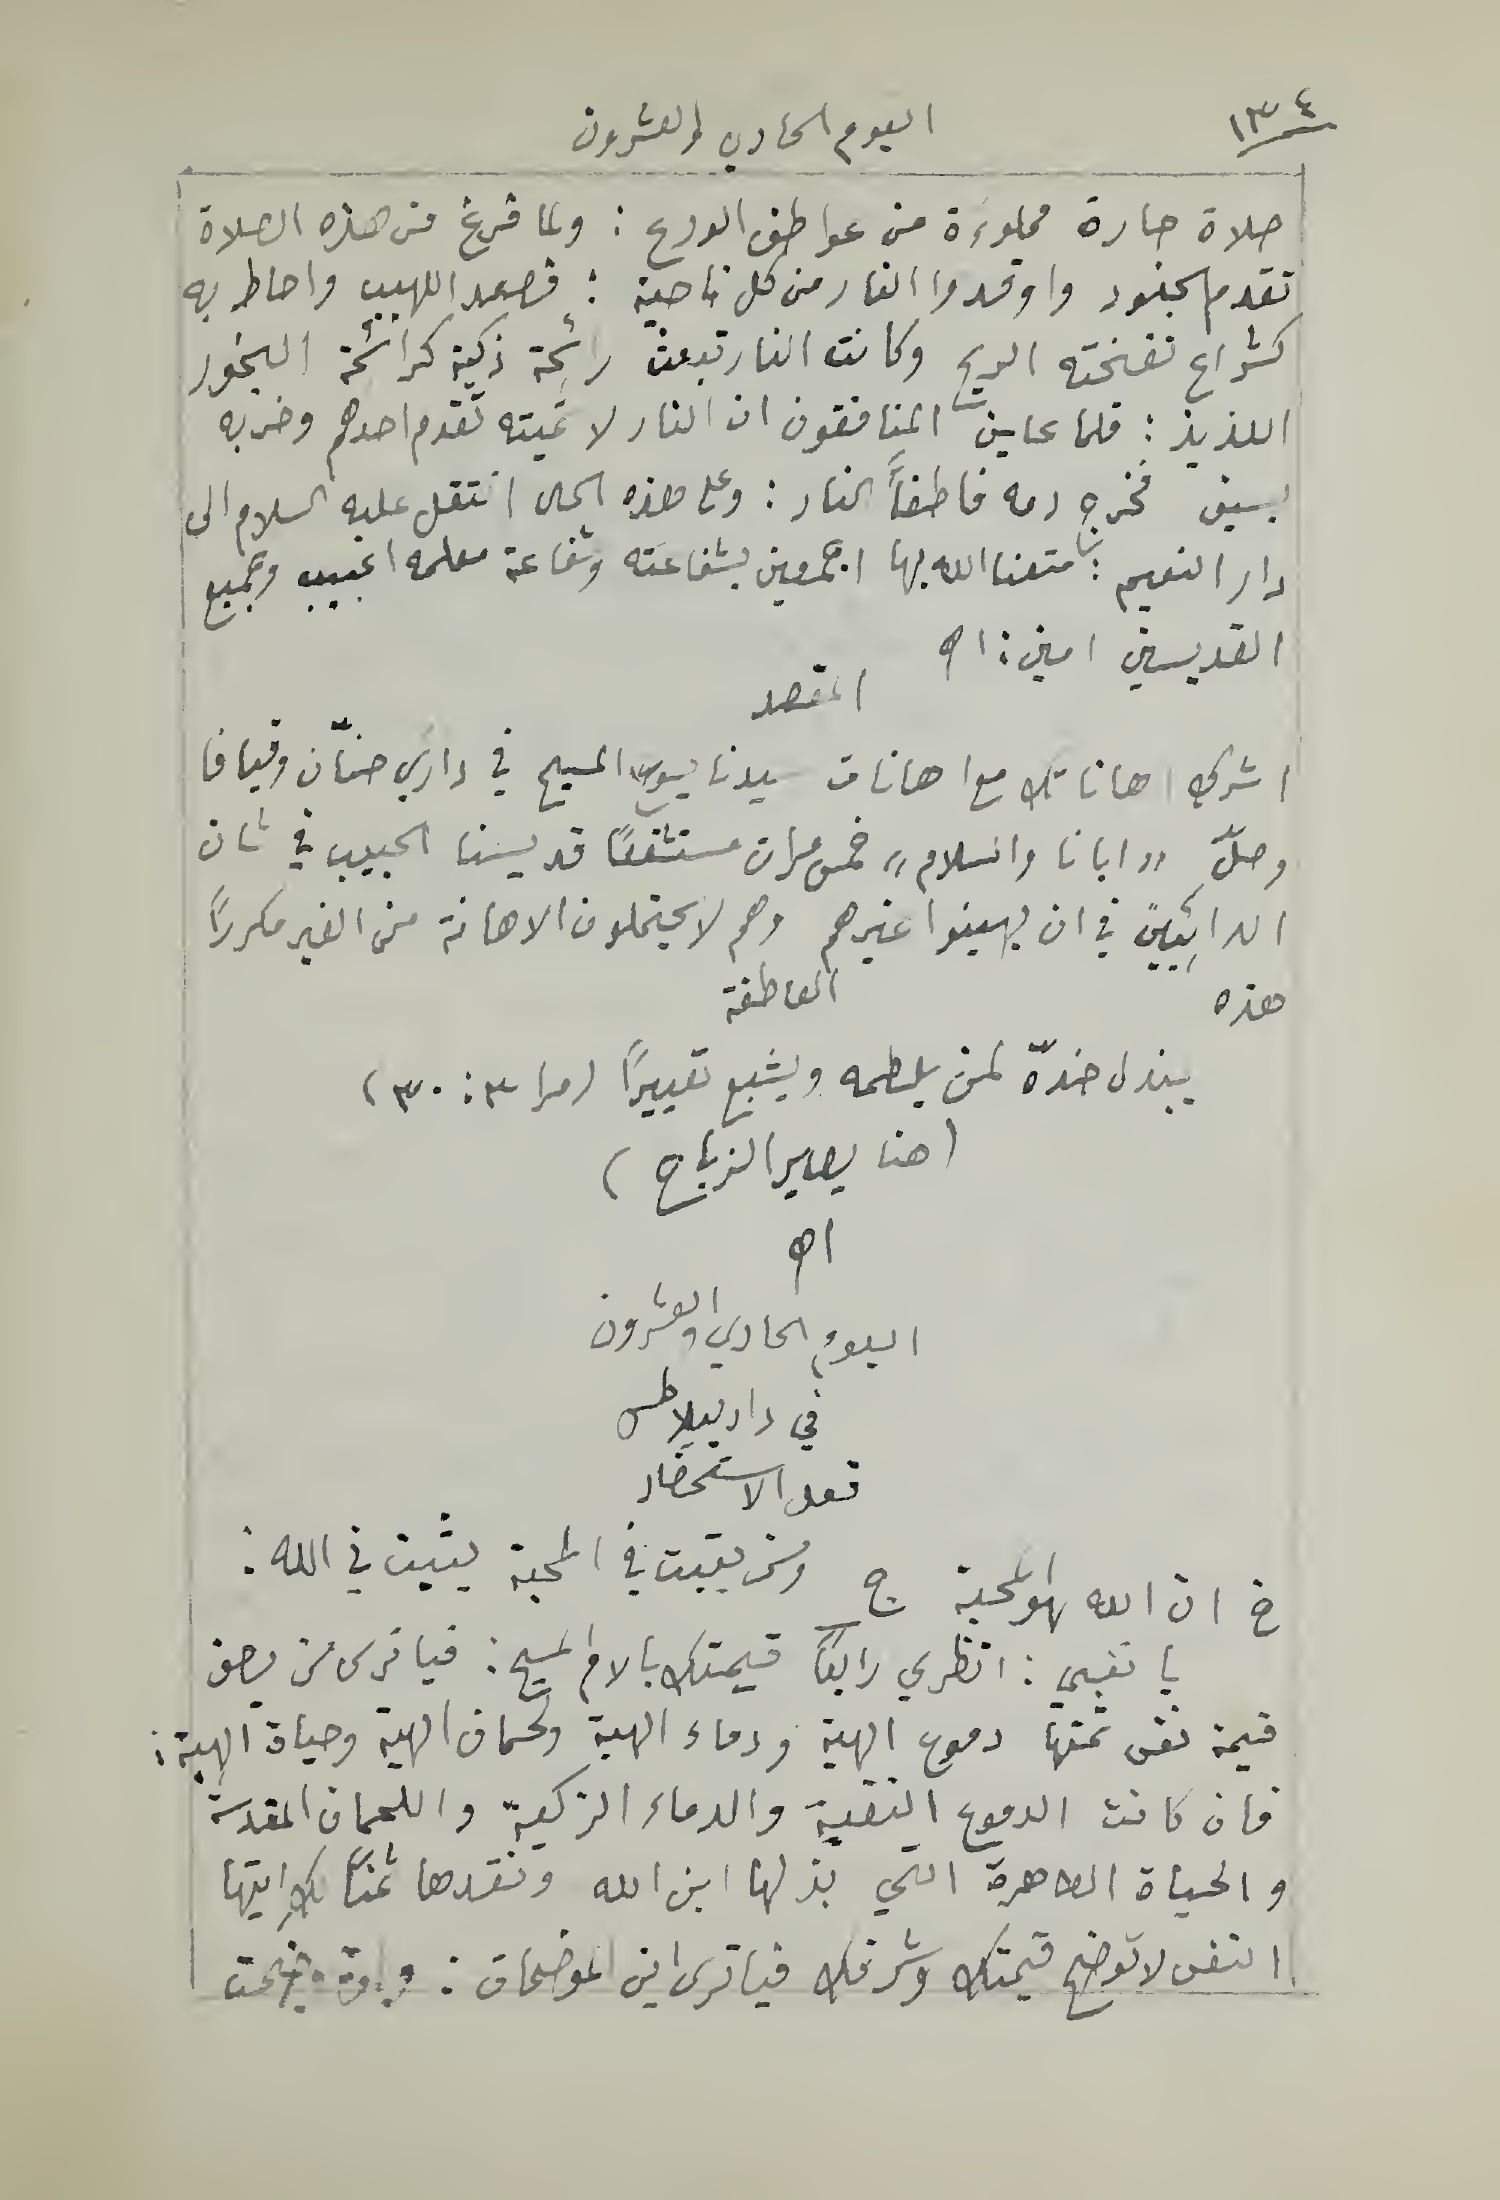 ١٣٤
اليوم الحادي والعشرون
صلاة حارة مملوءَة من عواطف الورع : ولما فرغ من هذه الصلاة
تقدم الجنود واوقدوا النار من كل ناحية : فصعد اللهيب واحاط به
كشراع نفخته الريح وكانت النار تبعث رائحة ذكية كرائحة البخور
اللذيذ : فلما عاين المنافقون ان النار لا تميته تقدم احدهم وضربه
بسيف فخرج دمه فاطفأَ النار : وعلى هذه الحال انتقل عليه السلام الى
دار النعيم : متعنا الله بها اجمعين بشفاعته وشفاعة معلمه الحبيب وجميع
القديسين امين : اھ
المقصد
اشركِ اهاناتك مع اهانات سيدنا يسوع المسيح في دارَي حنّان وقيافا
وصلّ „ ابانا والسلام „ خمس مرات مستشفعًا قديسنا الحبيب في شان
الدائِبين في ان يهينوا غيرهم وهم لا يحتملون الاهانة من الغير مكررًا
هذه العاطفة
يبذل خدّه لمن يلطمه ويشبع تعييرًا ( مرا ٣ : ٣٠ )
( هنا يصير الزياح )
اھ
اليوم الحادي والعشرون
في دار بيلاطس
فعل الاستحضار
خ ان الله هو المحبة ج ومن يثبت في المحبة يثبت في الله :
يا نفسي : انظري رابعًا قيمتك بالام المسيح : فيا ترى من يصف
قيمة نفس ثمنها دموع الهية ودماء الهية ولحمان الهية وحياة الهية :
فان كانت الدموع النقية والدماء الزكية واللحمان المقدسة
والحياة الطاهرة التي بذلها ابن الله ونقدها ثمنًا لكِ ايتها
النفس لا توضح قيمتك وشرفك فيا ترى اين الموضحات :